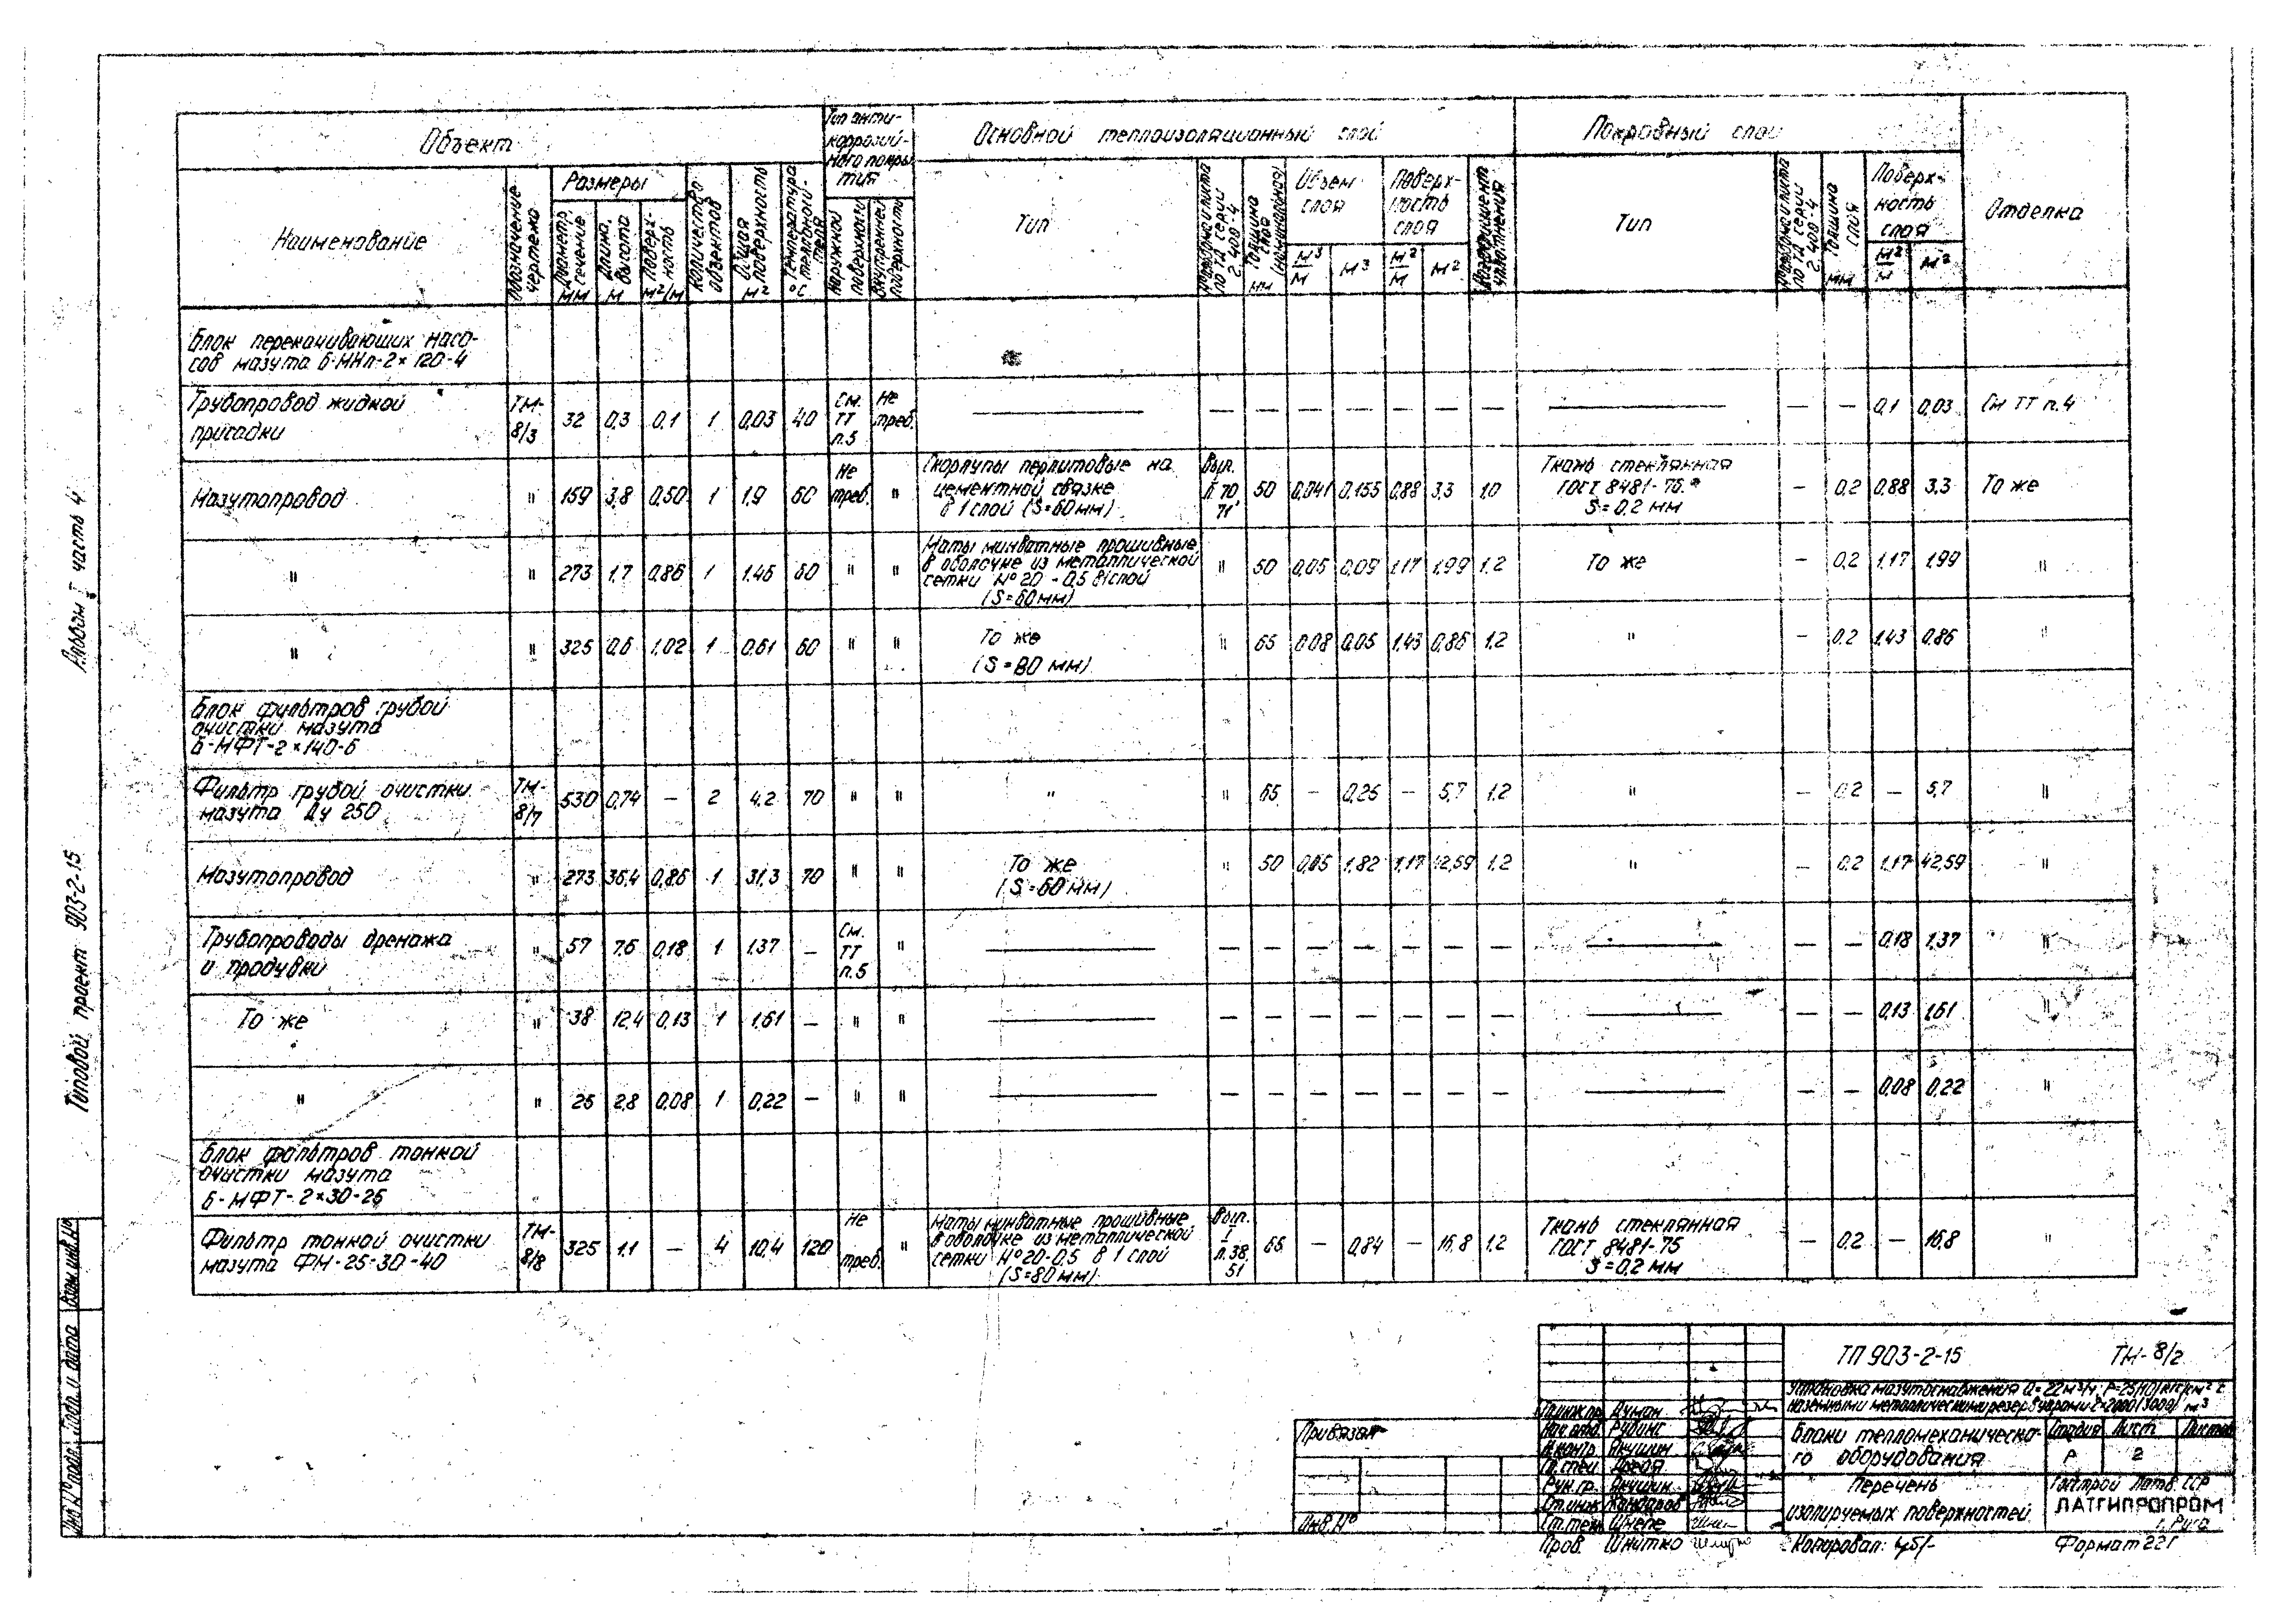 Альбом I часть 4
Типовой проект 903-2-15
Взам. инв. №
Подп. и дата
Инв. № подл.
Объект
Тип антикоррозийного покрытия
Основной теплоизоляционный слой
Покровный слой
Отделка
Наименование
Обозначение чертежа
Размеры
Диаметр, сечение мм
Длина, высота м
Поверхность м²/м
Количество объектов
Общая поверхность м²
Температура теплоносителя °С
наружной поверхности
внутренней поверхности
Тип
по ТД серии 2.400-4
Толщина слоя (номинальная) мм
Объем слоя
м³/м
м³
Поверхность слоя
м²/м
м²
Коэффициент уплотнения
Тип
по ТД серии 2.400-4
Толщина слоя мм
Поверхность слоя
м²/м
м²
Блок перекачивающих насо-
сов мазута Б-МНп-2×120-4
Трубопровод жидкой присадки ТМ-8/3 32 0,3 0,1 1 0,03 40 См. ТТ п.5 Не треб. — — — — — — — — — — — 0,1 0,03 См ТТ п.4
Мазутопровод " 159 3,8 0,50 1 1,9 60 Не треб. " Скорлупы перлитовые на цементной связке в 1 слой (S=60мм) Вып. п. 70, 71 50 0,041 0,155 0,88 3,3 1,0 Ткань стеклянная ГОСТ 8481-75.* S=0,2 мм — 0,2 0,88 3,3 То же
" " 273 1,7 0,86 1 1,46 60 " " Маты минватные прошивные в оболочке из металлической сетки №20-0,5 в 1 слой (S=60мм) " 50 0,05 0,09 1,17 1,99 1,2 То же — 0,2 1,17 1,99 "
" " 325 0,6 1,02 1 0,61 60 " " То же (S=80 мм) " 65 0,08 0,05 1,43 0,86 1,2 " — 0,2 1,43 0,86 "
Блок фильтров грубой
очистки мазута
Б-МФТ-2×140-6
Фильтр грубой очистки мазута Ду 250 ТМ-8/7 530 0,74 — 2 4,2 70 " " " " 65 — 0,26 — 5,7 1,2 " — 0,2 — 5,7 "
Мазутопровод " 273 36,4 0,86 1 31,3 70 " " То же (S=60мм) " 50 0,05 1,82 1,17 42,59 1,2 " — 0,2 1,17 42,59 "
Трубопроводы дренажа и продувки " 57 7,6 0,18 1 1,37 — См. ТТ п.5 " — — — — — — — — — — — 0,18 1,37 "
То же " 38 12,4 0,13 1 1,61 — " " — — — — — — — — — — — 0,13 1,61 "
" " 25 2,8 0,08 1 0,22 — " " — — — — — — — — — — — 0,08 0,22 "
Блок фильтров тонкой
очистки мазута
Б-МФТ-2×30-25
Фильтр тонкой очистки мазута ФМ-25-30-40 ТМ-8/8 325 1,1 — 4 10,4 120 Не треб. " Маты минватные прошивные в оболочке из металлической сетки №20-0,5 в 1 слой (S=80мм) Вып. I п.38, 51 65 — 0,84 — 16,8 1,2 Ткань стеклянная ГОСТ 8481-75 S=0,2 мм — 0,2 — 16,8 "
ТП 903-2-15 ТМ-8/2
Установка мазутоснабжения Q=22м³/ч
наземными металлическими резервуарами м³
Блоки тепломеханическо-
го оборудования
Стадия Лист Листов
Р 2
Перечень
изолируемых поверхностей
Госстрой Латв. ССР
ЛАТГИПРОПРОМ
г. Рига
Привязан
Инв. №
Гл.инж.пр. Думан
Нач.отд. Рубинс
Н.контр. Якушин
Гл.спец.
Рук.гр. Якушин
Ст.инж.
Ст.техн. Шнепе
Пров. Шнитко
Копировал:
Формат 22Г